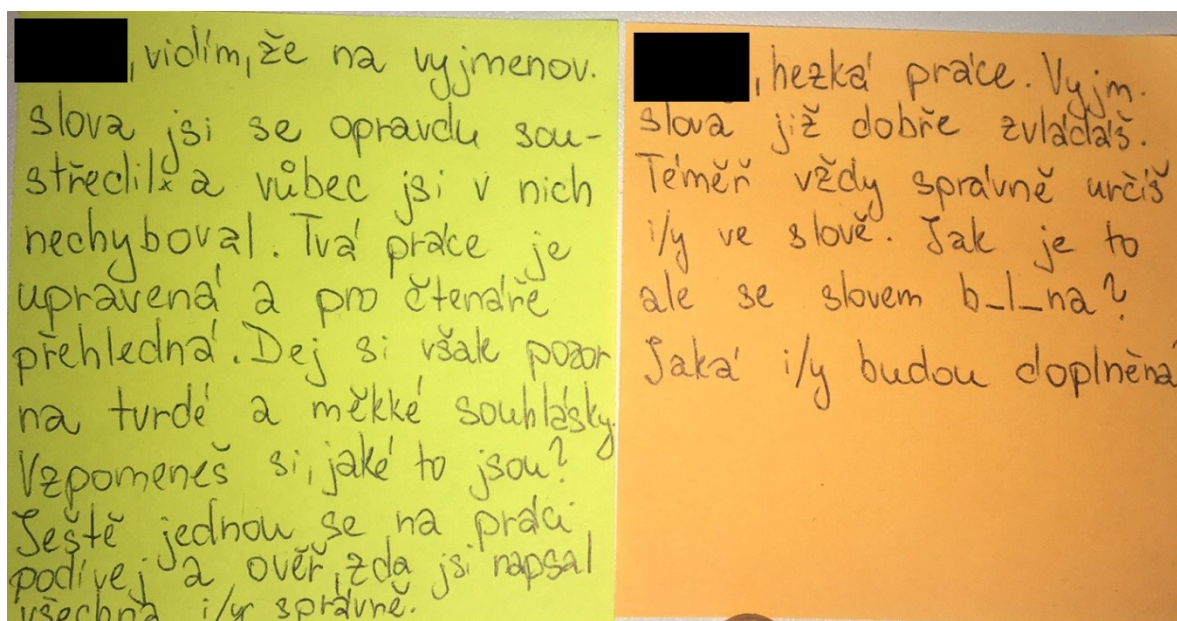 , vidím, že na vyjmenov.
slova jsi se opravdu sou-
středil a vůbec jsi v nich
nechyboval. Tvá práce je
upravená a pro čtenáře
přehledná. Dej si však pozor
na tvrdé a měkké souhlásky.
Vzpomeneš si, jaké to jsou?
Ještě jednou se na práci
podívej a ověř, zda jsi napsal
všechna i/y správně.
, hezká práce. Vyjm.
slova již dobře zvládáš.
Téměř vždy správně určíš
i/y ve slově. Jak je to
ale se slovem b_l_na?
Jaká i/y budou doplněna